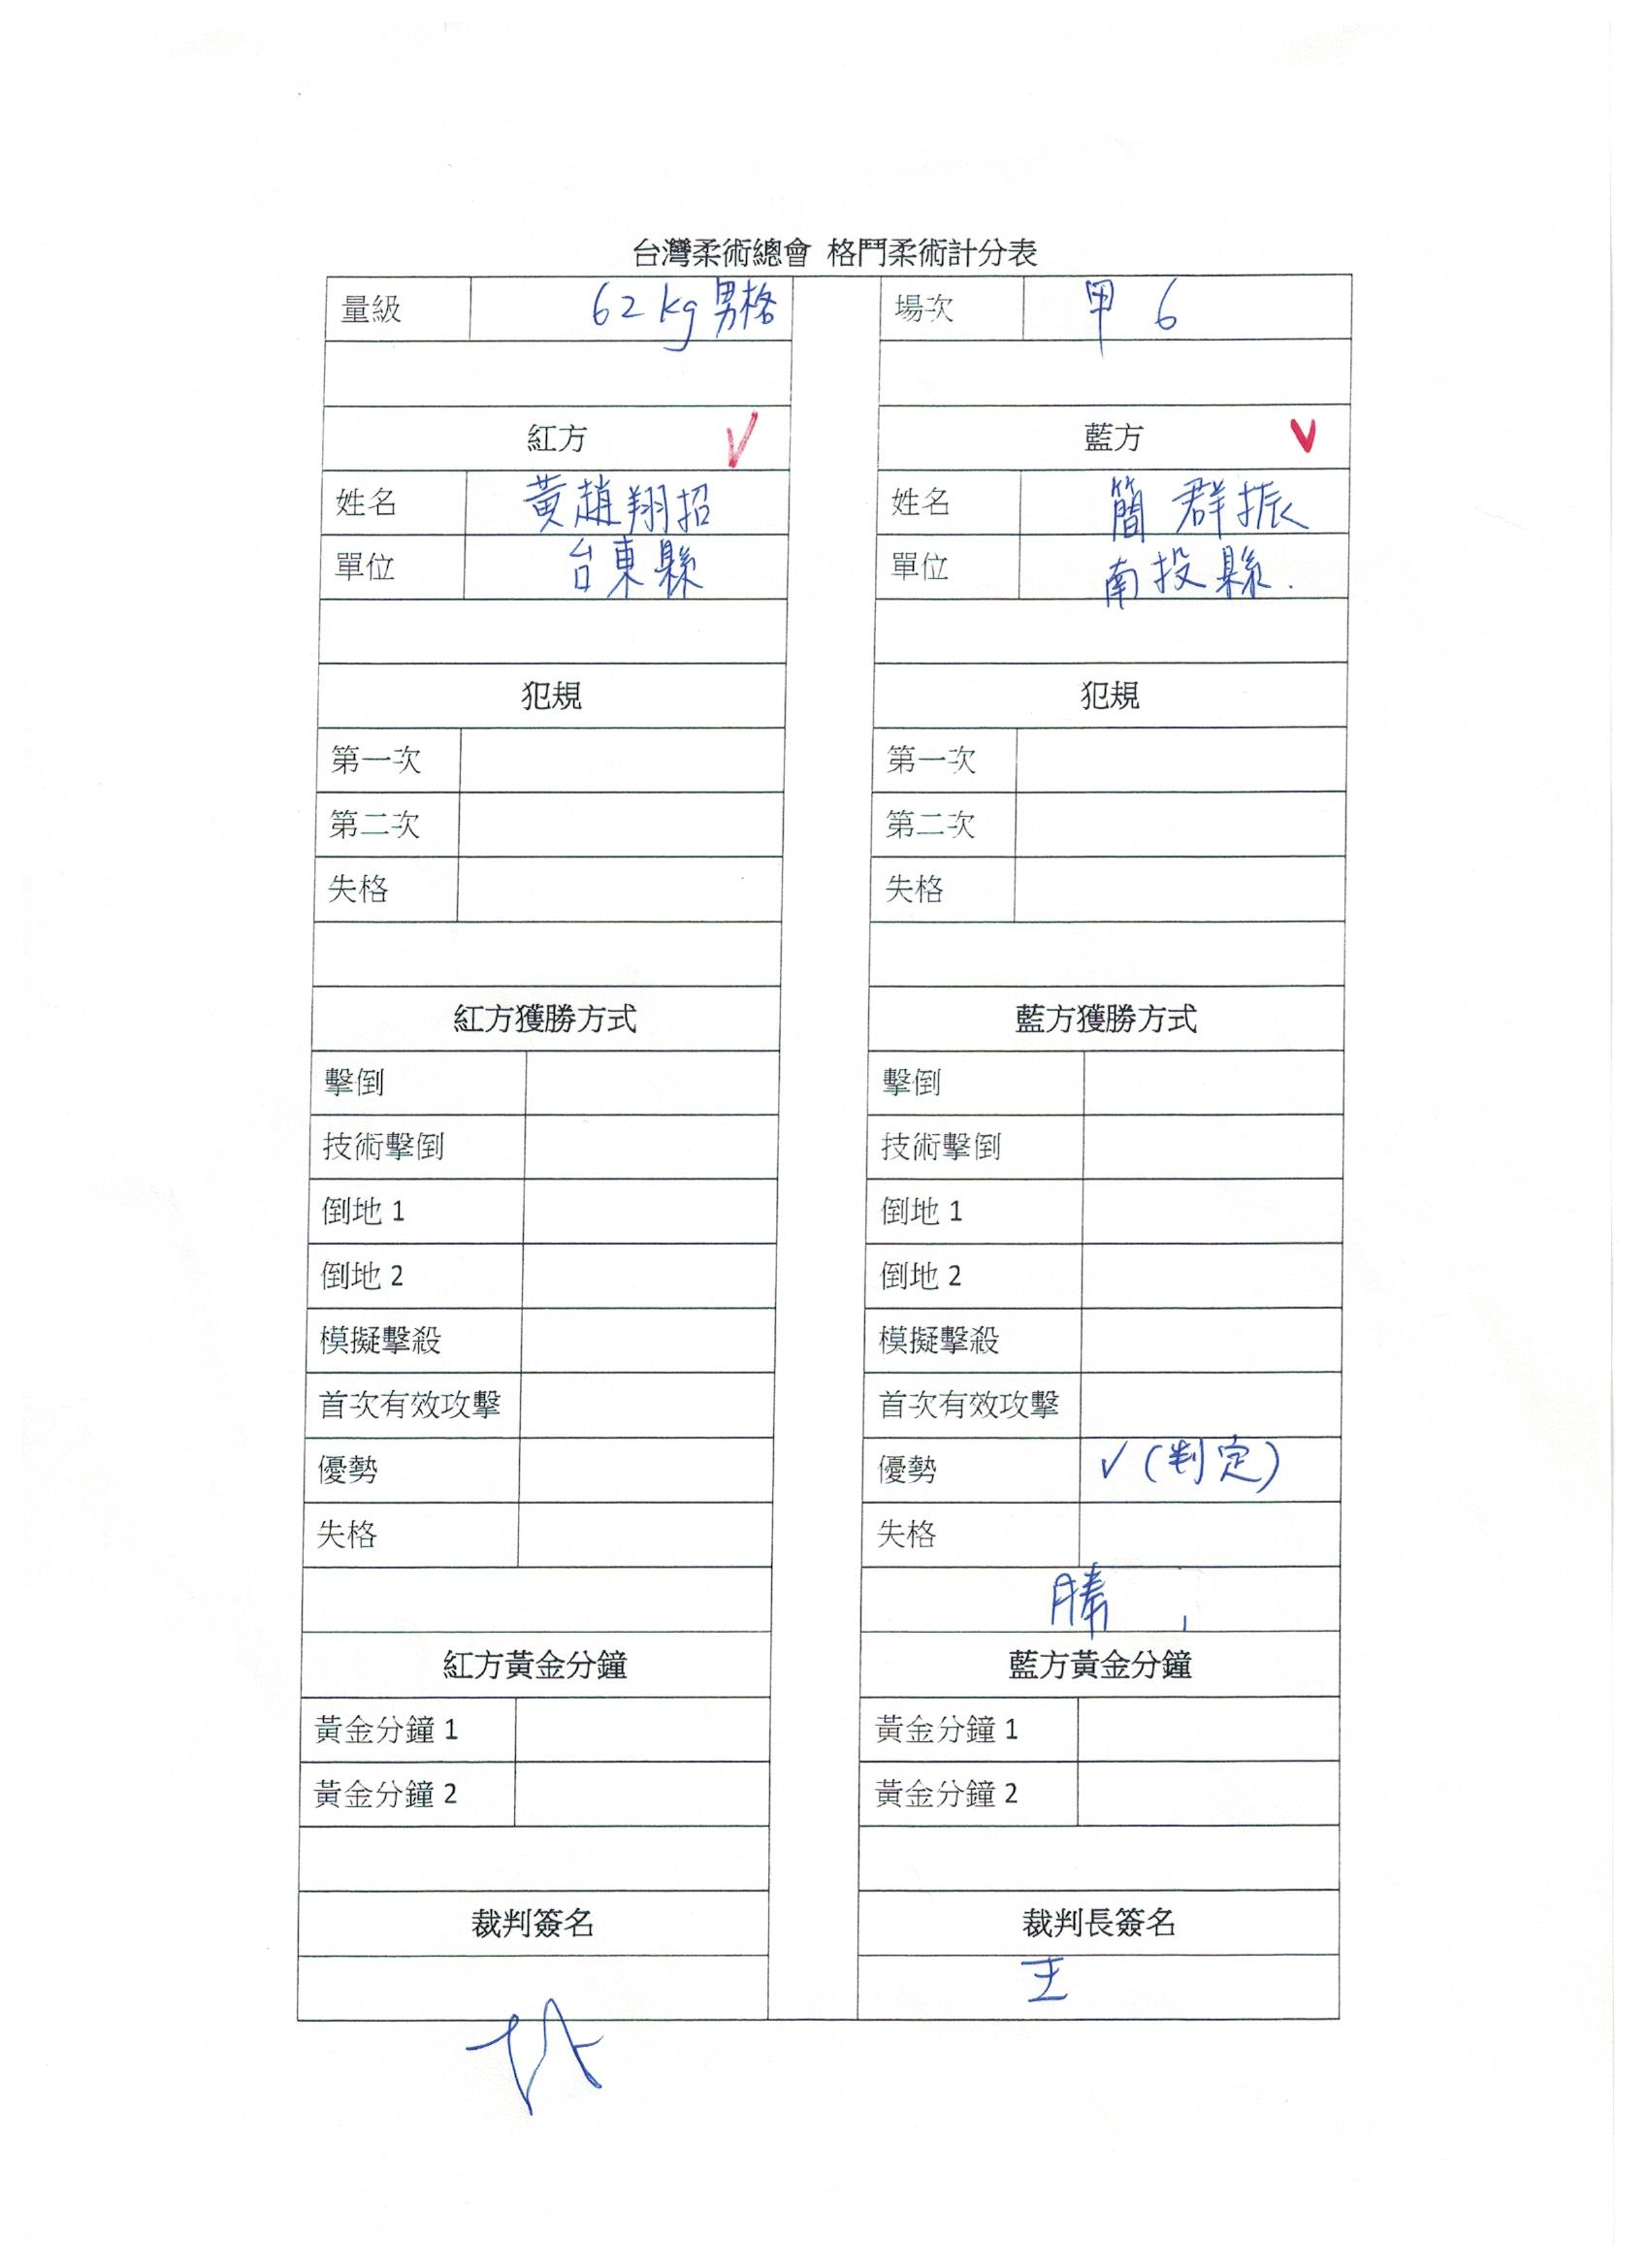 台灣柔術總會 格鬥柔術計分表
量級 62kg 男格 場次 甲 6
紅方 ✓ 藍方 ✓
姓名 黃趙翔招 姓名 簡群振
單位 台東縣 單位 南投縣.
犯規 犯規
第一次 第一次
第二次 第二次
失格 失格
紅方獲勝方式 藍方獲勝方式
擊倒 擊倒
技術擊倒 技術擊倒
倒地 1 倒地 1
倒地 2 倒地 2
模擬擊殺 模擬擊殺
首次有效攻擊 首次有效攻擊
優勢 優勢 ✓(判定)
失格 失格
勝
紅方黃金分鐘 藍方黃金分鐘
黃金分鐘 1 黃金分鐘 1
黃金分鐘 2 黃金分鐘 2
裁判簽名 裁判長簽名
王